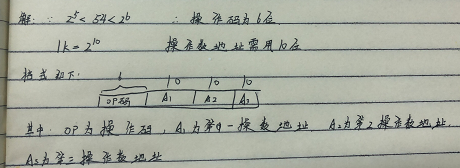 解: ∵ 2⁵ < 54 < 2⁶ ∴ 操作码为6位
1k = 2¹⁰ 操作数地址需用10位
格式如下:
6 10 10 10
OP码 A₁ A₂ A₃
其中: OP为操作码, A₁为第一操数地址 A₂为第2操作数地址,
A₃为第三操作数地址